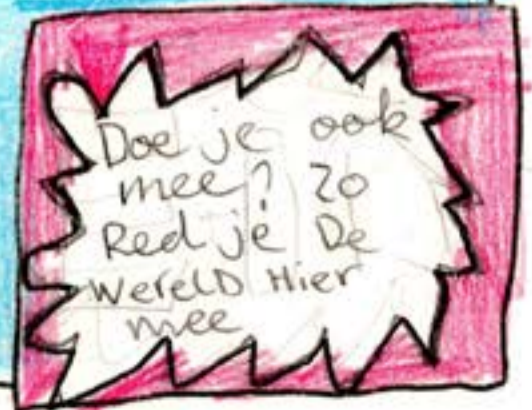 Doe je ook
mee? Zo
Red je De
WereLD Hier
mee